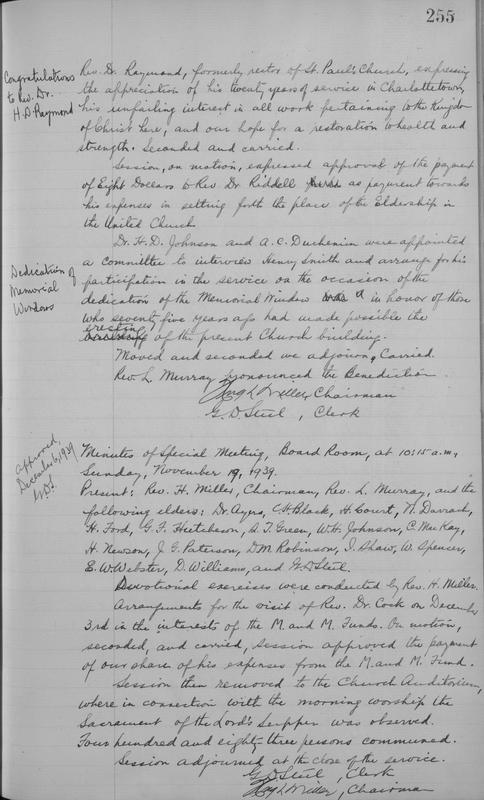 255
Congratulations
to Rev. Dr.
H. D. Raymond
Rev. Dr. Raymond, formerly rector of St. Paul's Church, expressing
the appreciation of his twenty years of service in Charlottetown,
his unfailing interest in all work pertaining to the Kingdom
of Christ here, and our hope for a restoration to health and
strength. Seconded and carried.
Session, on motion, expressed approval of the payment
of Eight Dollars to Rev. Dr. Riddell as payment towards
his expenses in setting forth the place of the Eldership in
the United Church.
Dedication of
Memorial
Windows
Dr. H. D. Johnson and A. C. Duchemin were appointed
a committee to interview Henry Smith and arrange for his
participation in the service on the occasion of the
dedication of the Memorial Window in honor of those
who seventy five years ago had made possible the
erecting
of the present Church building.
Moved and seconded we adjourn, Carried.
Rev. L. Murray pronounced the Benediction.
Hugh Miller, Chairman
G. D. Steel, Clerk
Approved,
December 16, 1939
Minutes of Special Meeting, Board Room, at 10:15 a.m.,
Sunday, November 19, 1939.
Present: Rev. H. Miller, Chairman, Rev. L. Murray, and the
following elders: Dr. Ayers, C. H. Black, H. Court, N. Darrach,
H. Ford, G. F. Hutcheson, S. T. Green, W. H. Johnson, C. MacKay,
H. Newson, J. G. Paterson, D. M. Robinson, I. Shaw, W. Spencer,
E. W. Webster, D. Williams, and G. D. Steel.
Devotional exercises were conducted by Rev. H. Miller.
Arrangements for the visit of Rev. Dr. Cock on December
3rd in the interests of the M. and M. Funds. On motion,
seconded, and carried, Session approved the payment
of our share of his expenses from the M. and M. Fund.
Session then removed to the Church Auditorium,
where in connection with the morning worship the
Sacrament of the Lord's Supper was observed.
Four hundred and eighty-three persons communed.
Session adjourned at the close of the service.
G. D. Steel, Clerk
Hugh Miller, Chairman